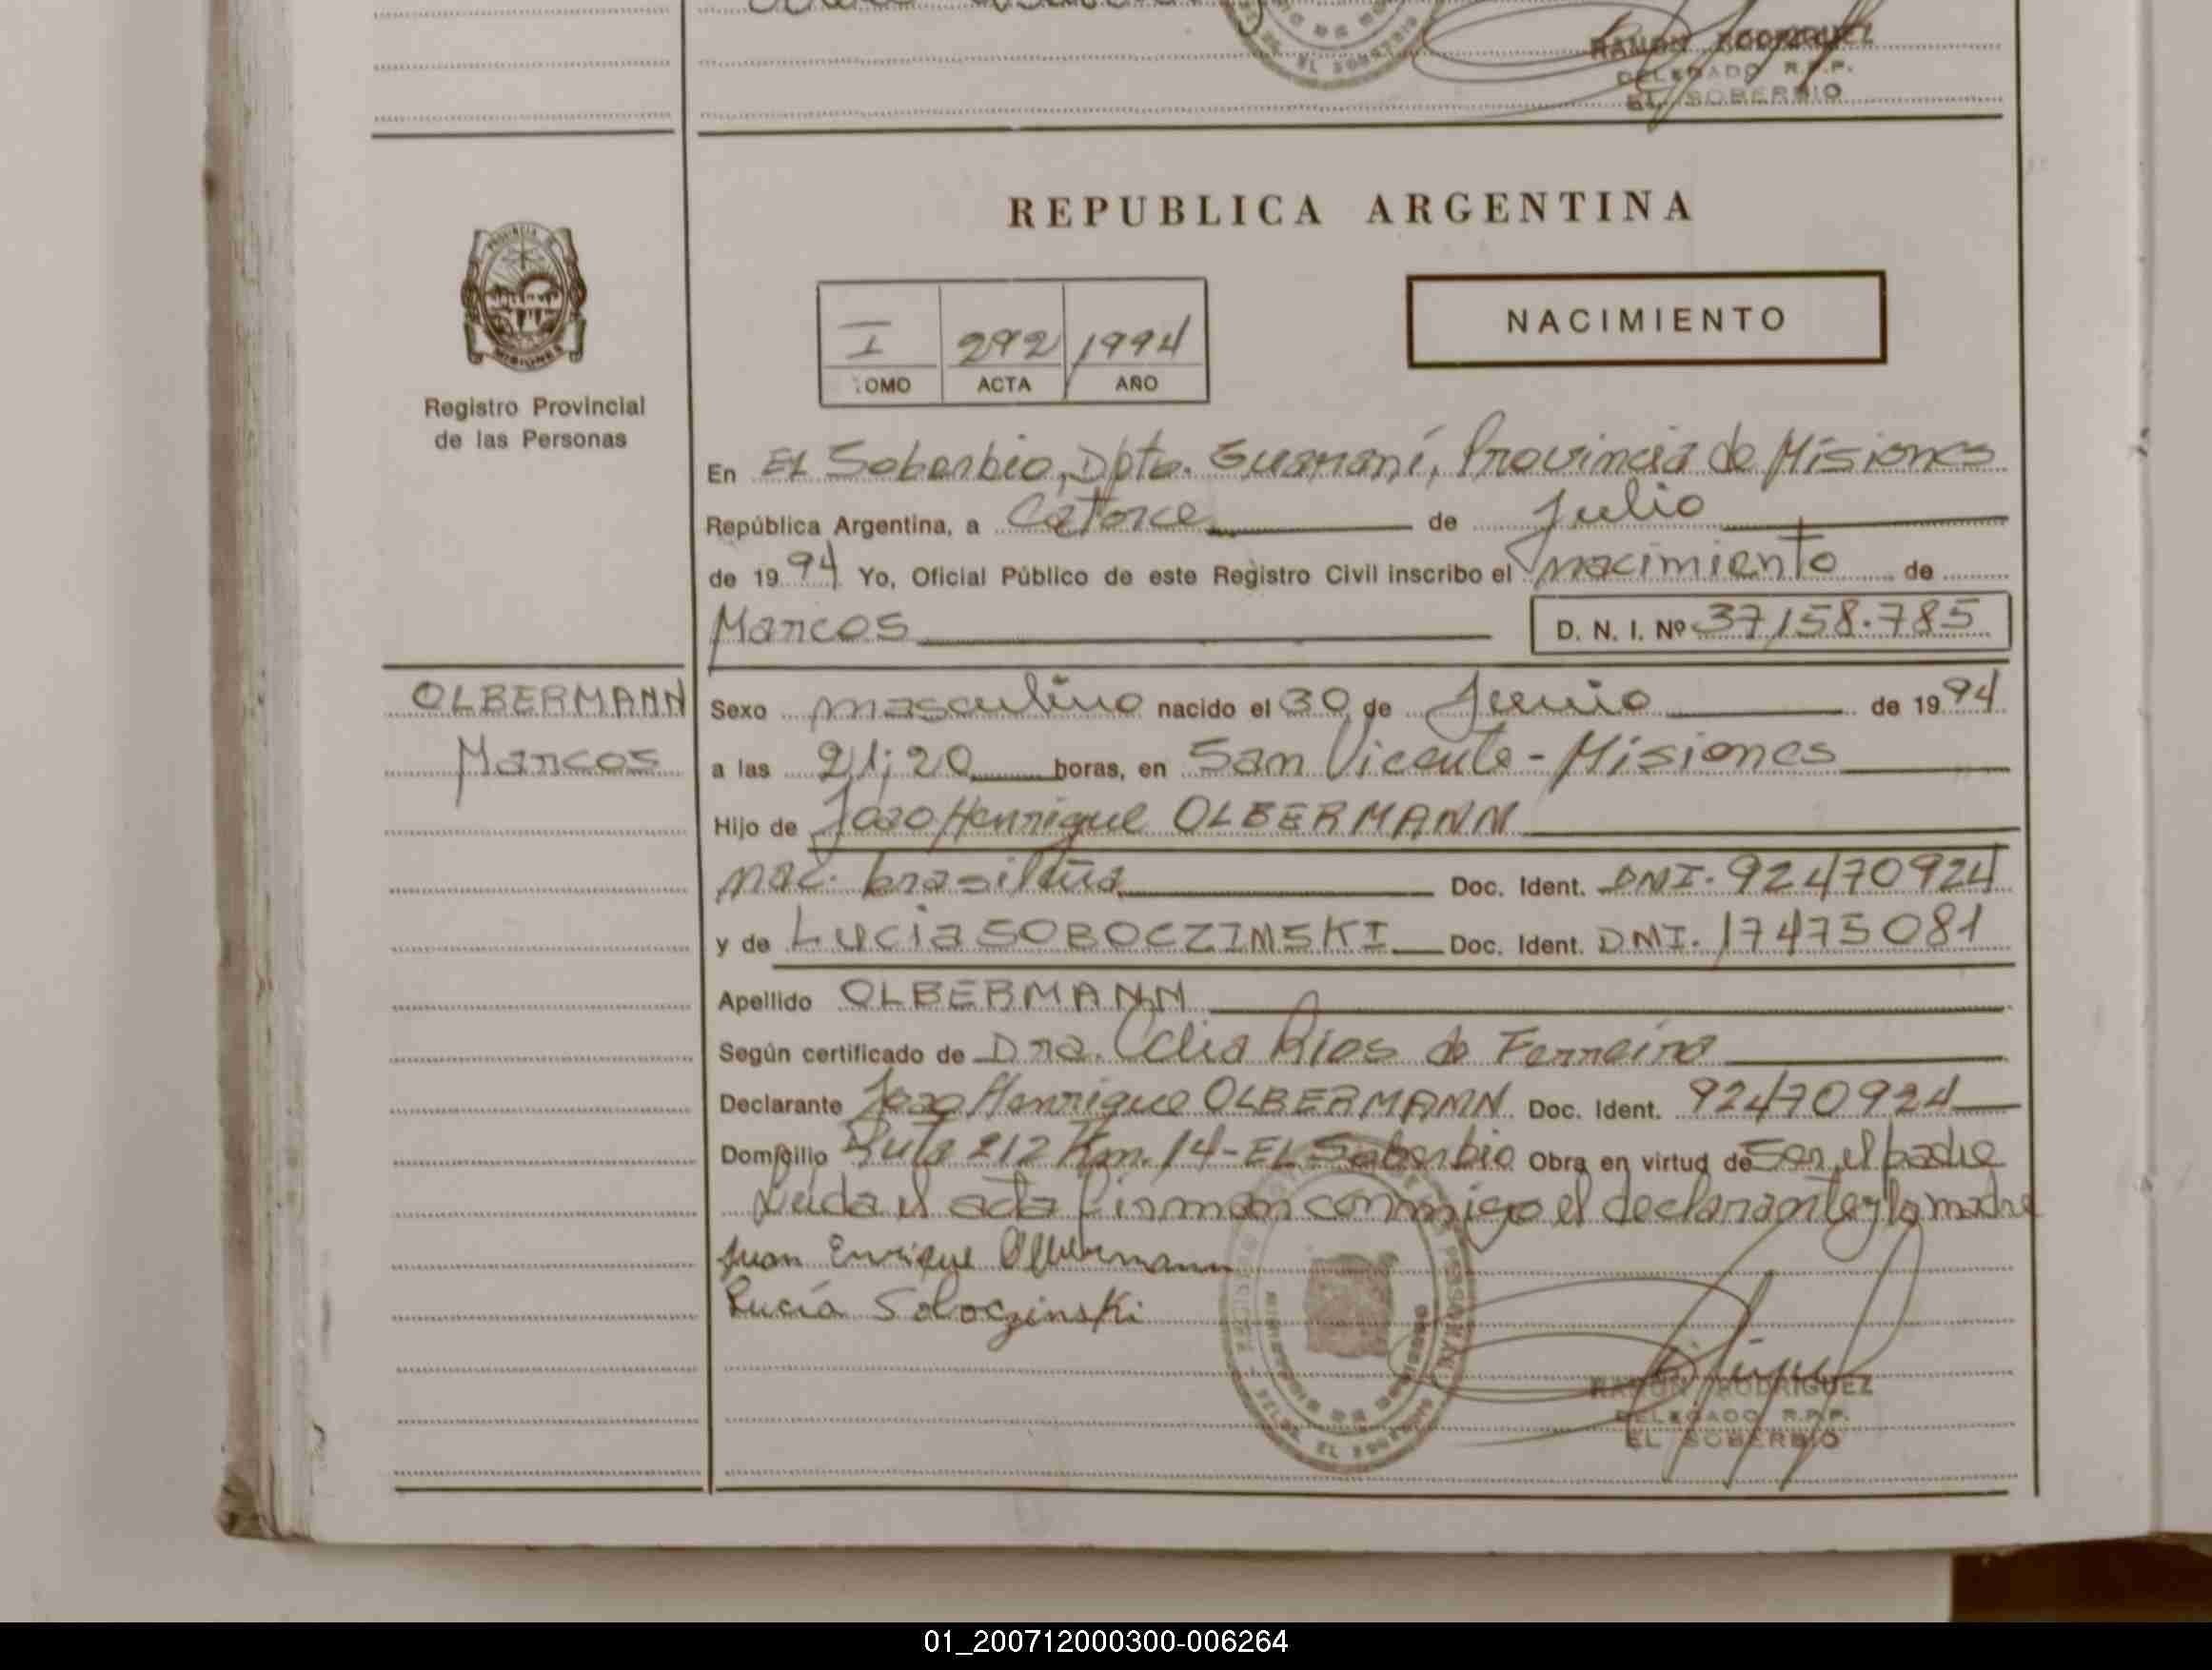 RAMON RODRIGUEZ
DELEGADO R.P.P.
EL SOBERBIO
REPUBLICA ARGENTINA
PROVINCIA DE
MISIONES
Registro Provincial
de las Personas
I 292 1994
TOMO ACTA AÑO
NACIMIENTO
En El Soberbio, Dpto. Guaraní, Provincia de Misiones
República Argentina, a Catorce de Julio
de 1994 Yo, Oficial Público de este Registro Civil inscribo el nacimiento de
Marcos D. N. I. Nº 37158.785
OLBERMANN
Marcos
Sexo masculino nacido el 30 de Junio de 1994
a las 21;20 horas, en San Vicente - Misiones
Hijo de Joao Henrique OLBERMANN
nac. brasileña Doc. Ident. DNI. 92470924
y de Lucia SOBOCZINSKI Doc. Ident. DNI. 17475081
Apellido OLBERMANN
Según certificado de Dra. Celia Rios de Ferreira
Declarante Joao Henrique OLBERMANN Doc. Ident. 92470924
Domicilio Ruta 212 Km. 14 - El Soberbio Obra en virtud de ser el padre
Leida el acta firman conmigo el declarante y la madre
Juan Enrique Olbermann
Lucía Soboczinski
RAMON RODRIGUEZ
DELEGADO R.P.P.
EL SOBERBIO
01_200712000300-006264